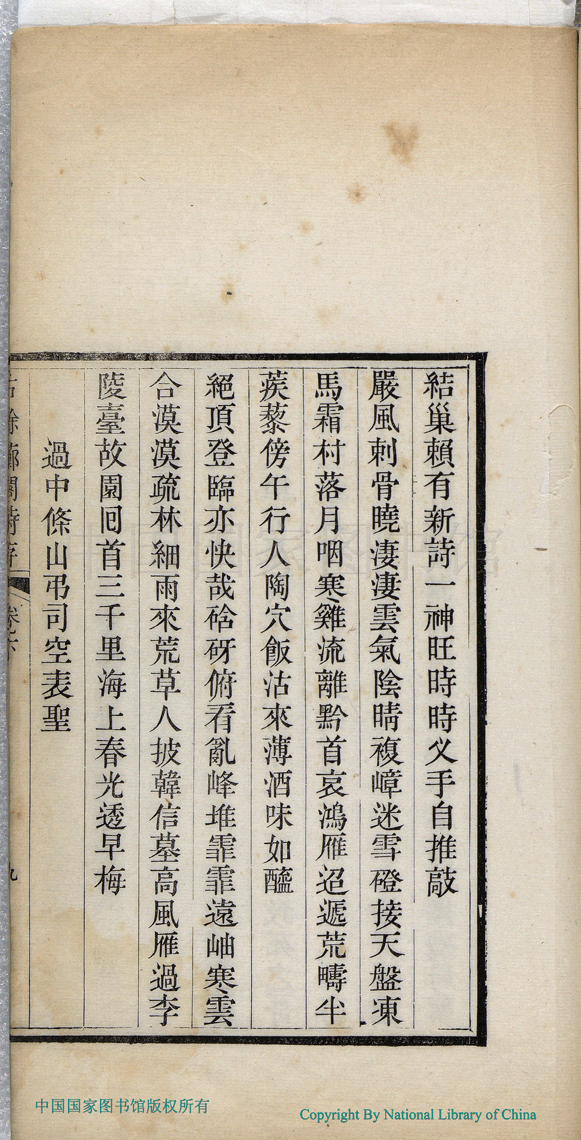 結巢賴有新詩一神旺時時义手自推敲
嚴風刺骨曉淒淒雲氣陰晴複嶂迷雪磴接天盤凍
馬霜村落月咽寒雞流離黔首哀鴻雁迢遞荒疇半
蒺藜傍午行人陶穴飯沽來薄酒味如醯
絕頂登臨亦快哉硲砑俯看亂峰堆霏霏遠岫寒雲
合漠漠疏林細雨來荒草人披韓信墓高風雁過李
陵臺故園囘首三千里海上春光透早梅
過中條山弔司空表聖
餘
閣詩存
卷六
九
中国国家图书馆版权所有
Copyright By National Library of China